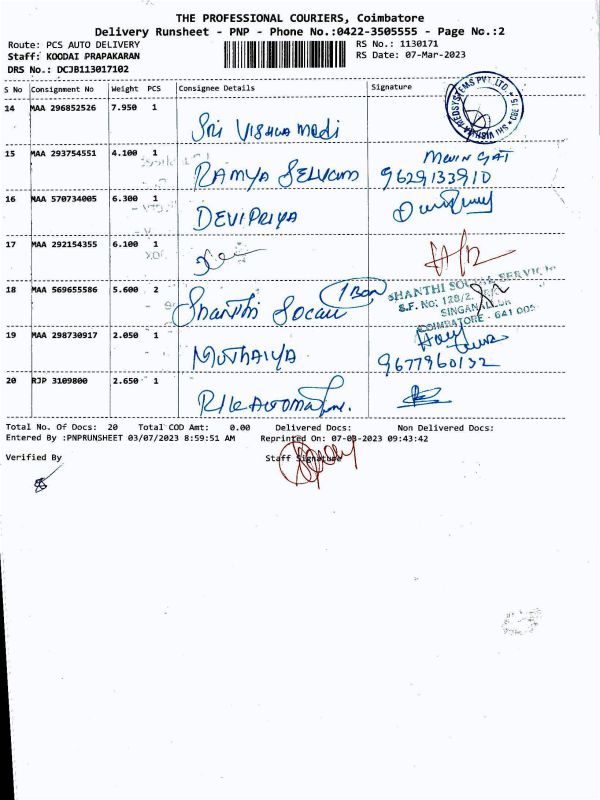 THE PROFESSIONAL COURIERS, Coimbatore
Delivery Runsheet - PNP - Phone No.:0422-3505555 - Page No.:2
Route: PCS AUTO DELIVERY RS No.: 1130171
Staff: KOODAI PRAPAKARAN RS Date: 07-Mar-2023
DRS No.: DCJB113017102
S No Consignment No Weight PCS Consignee Details Signature
14 MAA 296852526 7.950 1
Sri Vishwa Medi
15 MAA 293754551 4.100 1
RAMYA SELVAM 9629133910
16 MAA 570734005 6.300 1
DEVIPRIYA
17 MAA 292154355 6.100 1
18 MAA 569655586 5.600 2
1 Box
SHANTHI SOCIAL SERVICE
S.F. No: 128/2
SINGANALLUR
COIMBATORE - 641 005
Shanthi Social
19 MAA 298730917 2.050 1
MUTHAIYA 9677960132
20 RJP 3109800 2.650 1
Total No. Of Docs: 20 Total COD Amt: 0.00 Delivered Docs: Non Delivered Docs:
Entered By :PNPRUNSHEET 03/07/2023 8:59:51 AM Reprinted On: 07-03-2023 09:43:42
Verified By Staff Signature